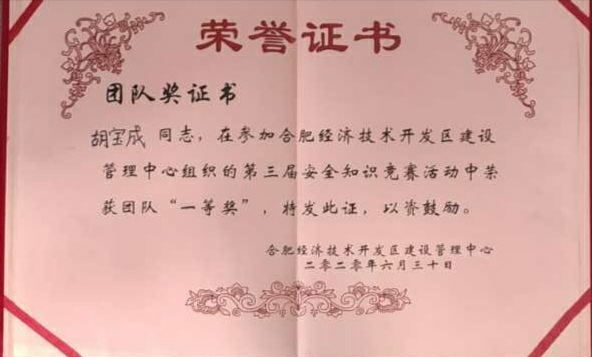 荣誉证书
团队奖证书
胡宝成 同志，在参加合肥经济技术开发区建设
管理中心组织的第三届安全知识竞赛活动中荣
获团队“一等奖”，特发此证，以资鼓励。
合肥经济技术开发区建设管理中心
二零二零年六月三十日